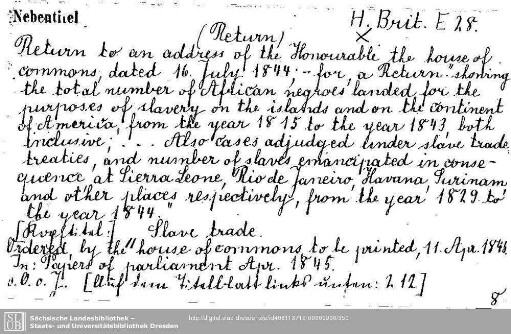 Nebentitel
H. Brit. E 28.
(Return)
Return to an address of the Honourable the house of
commons, dated 16. July 1844: - for, a Return "showing
the total number of African negroes landed for the
purposes of slavery on the islands and on the continent
of America, from the year 1815 to the year 1843, both
inclusive; ... Also cases adjudged under slave trade
treaties, and number of slaves emancipated in conse-
quence at Sierra Leone, Rio de Janeiro, Havana, Surinam
and other places respectively, from the year 1829 to
the year 1844."
[Kopftitel:] Slave trade.
Ordered, by the house of commons to be printed, 11. Apr. 1845.
In: Papers of parliament Apr. 1845.
o. O. o. J. [Auf dem Titelblatt links unten: 212]
8
Sächsische Landesbibliothek –
Staats- und Universitätsbibliothek Dresden